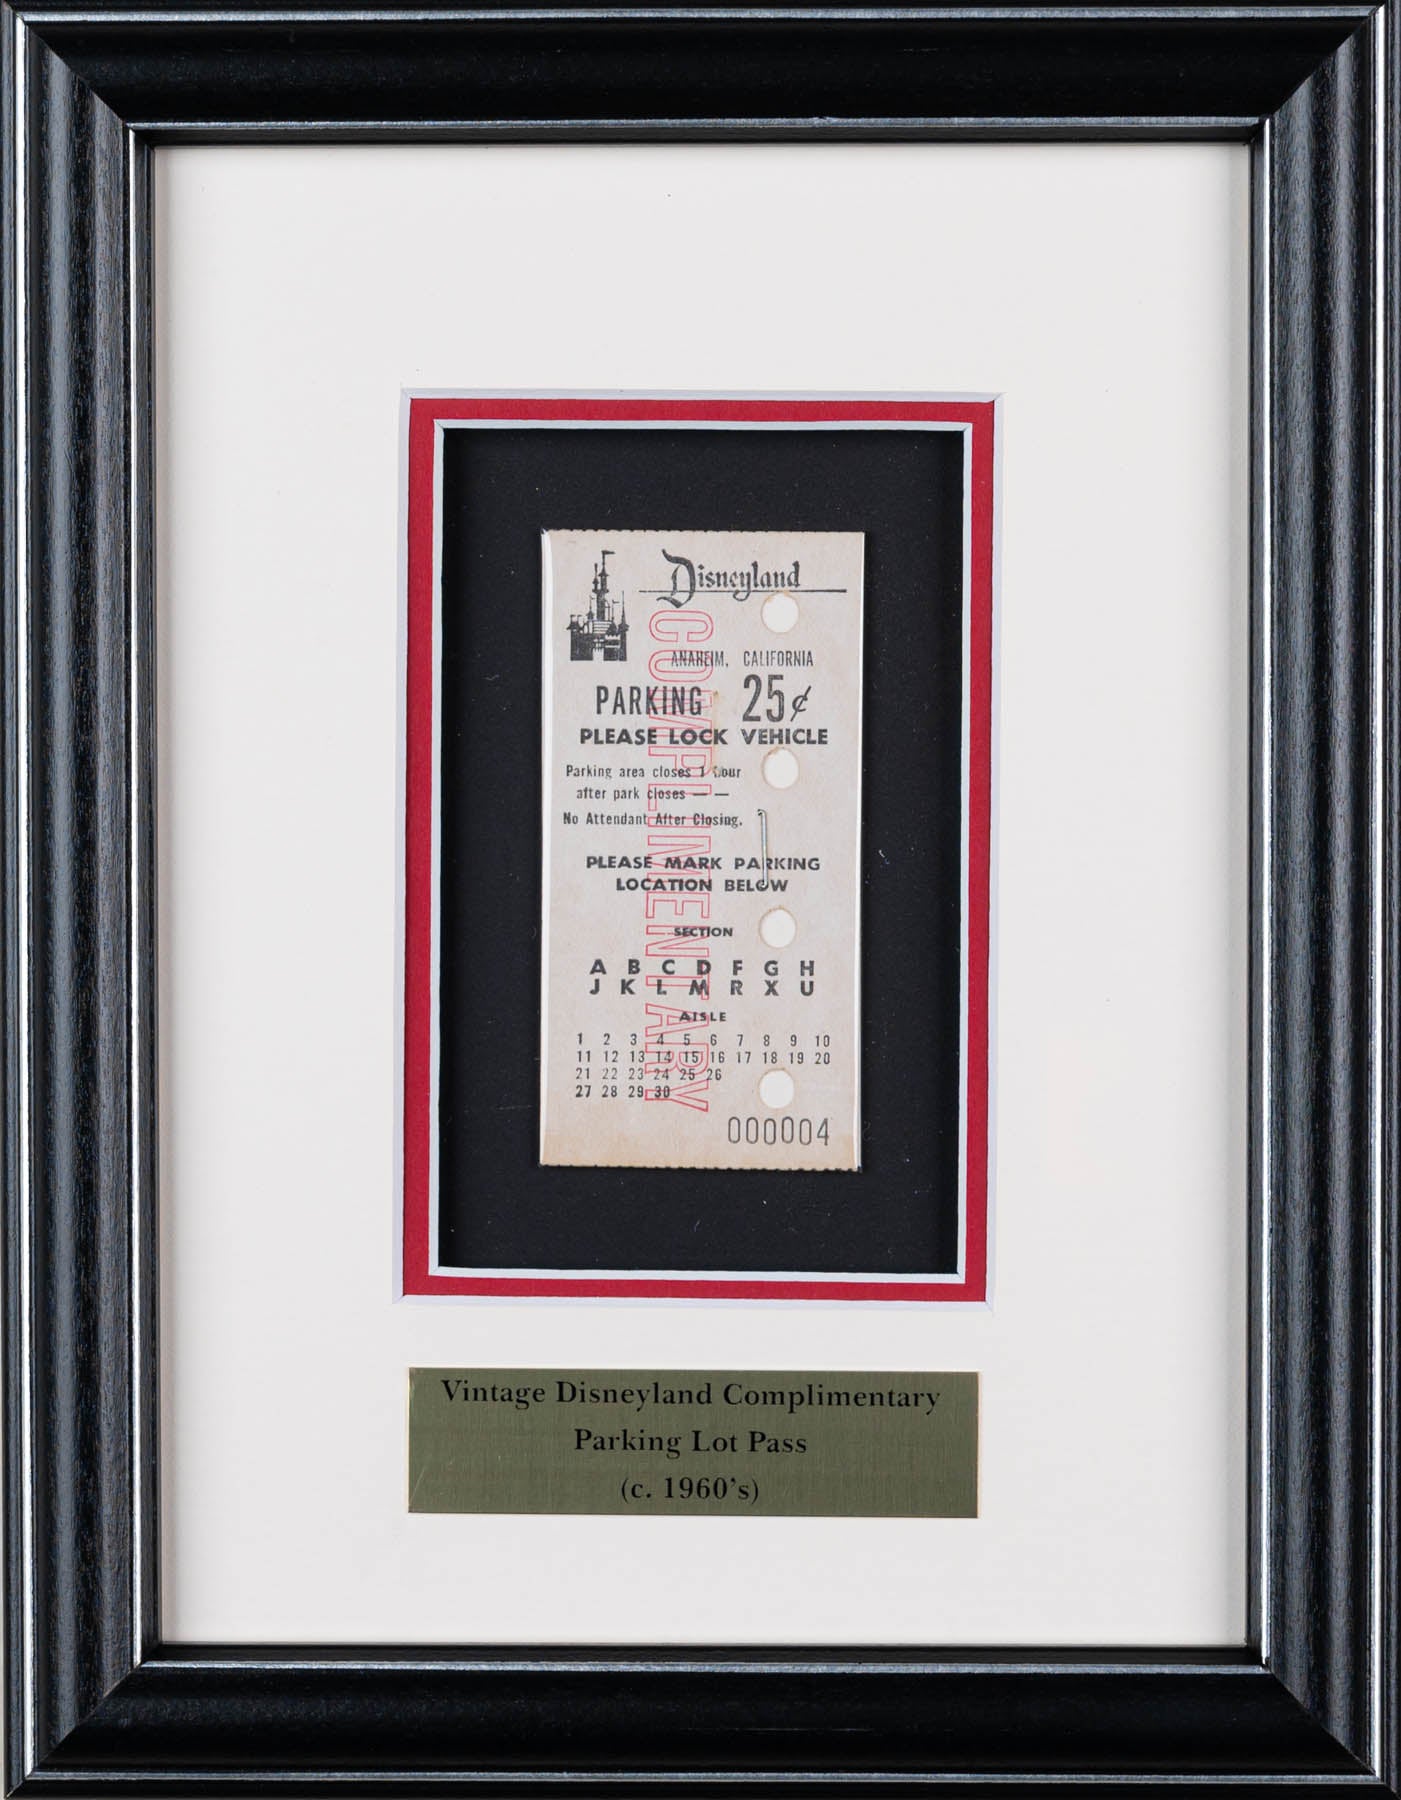 Disneyland
ANAHEIM, CALIFORNIA
PARKING 25¢
PLEASE LOCK VEHICLE
Parking area closes 1 hour
after park closes — —
No Attendant After Closing.
PLEASE MARK PARKING
LOCATION BELOW
SECTION
A B C D F G H
J K L M R X U
AISLE
1 2 3 4 5 6 7 8 9 10
11 12 13 14 15 16 17 18 19 20
21 22 23 24 25 26
27 28 29 30
000004
COMPLIMENTARY
Vintage Disneyland Complimentary
Parking Lot Pass
(c. 1960's)